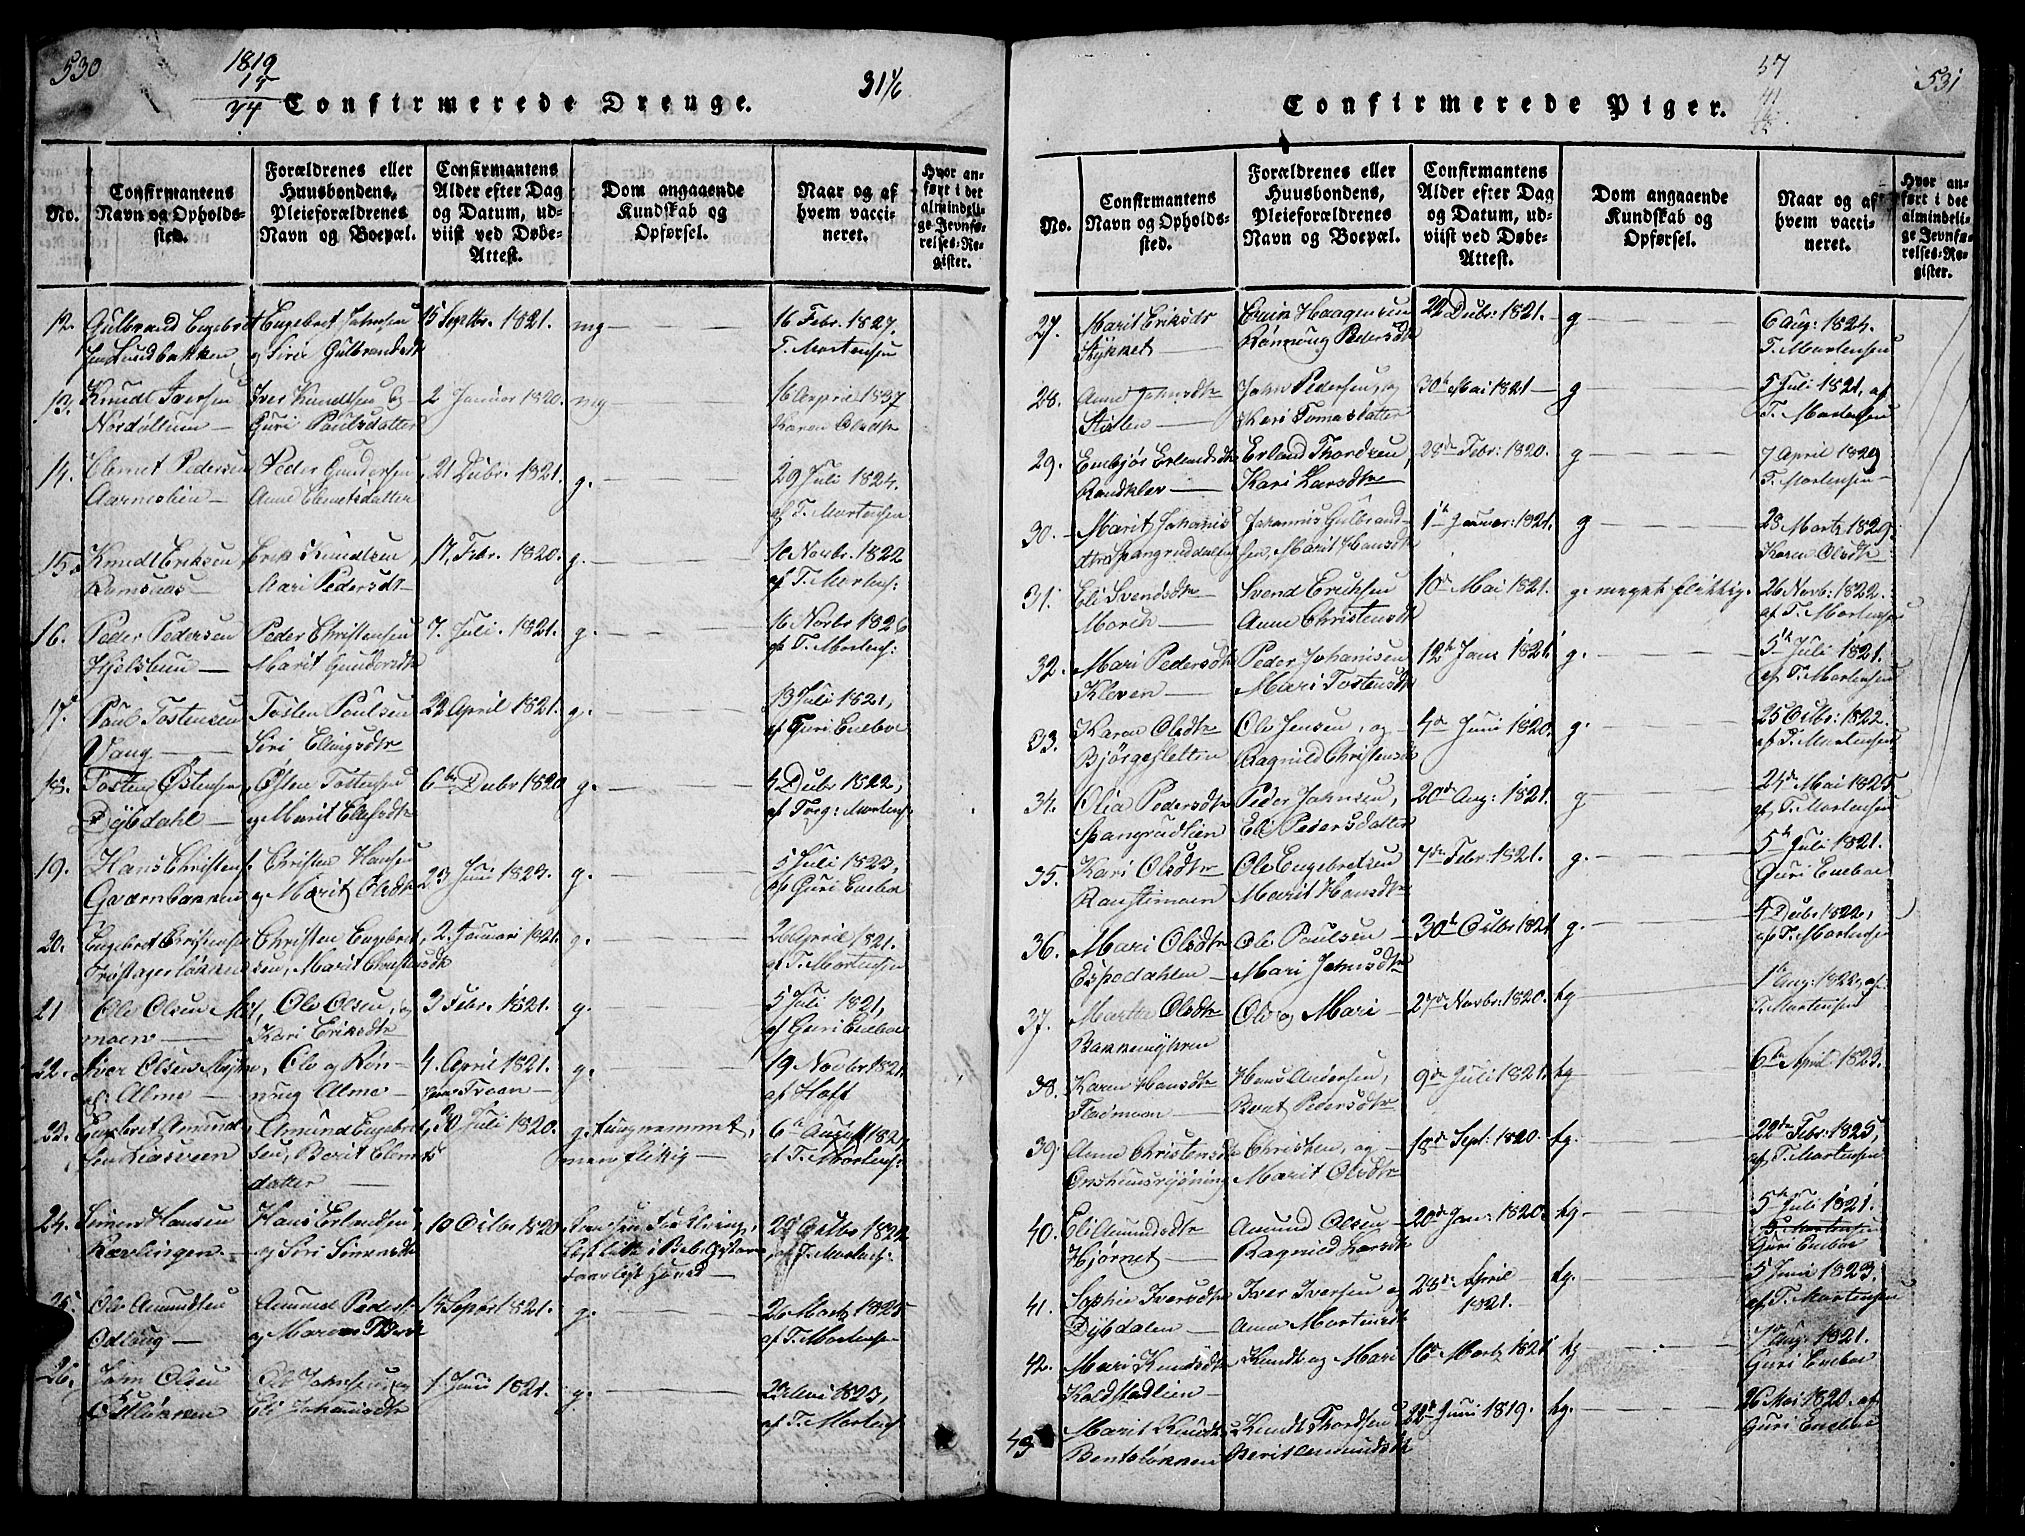 530
1819
17
31 1/6
Confirmerede Drenge.
No.
Confirmantens Navn og Opholdssted.
Forældrenes eller Huusbondens, Pleieforældrenes Navn og Boepæl.
Confirmantens Alder efter Dag og Datum, udviist ved Døbe-Attest.
Dom angaaende Kundskab og Opførsel.
Naar og af hvem vaccineret.
Hvor anført i det almindelige Jevnførelses-Register.
12. Gulbrand Engebret Engebret Johnsen 15 Septbr. 1821. mg 16 Febr. 1827.
sen Lundbakken og Siri Gulbrandsdt T. Mortensen
13. Knudt Iversen Iver Knudtsen og 2 Januar 1820. mg 16 April 1837
Guri Paulsdatter Karen Olsdtr
14. Clemet Pedersen Peder Gundersen 21 Debr. 1821. g. 29 Juli 1824.
Aarneslien Anne Clemetsdatter af T. Mortensen
15. Knudt Eriksen Erik Knudtsen, 17. Febr. 1820. g. 10 Novbr. 1822
Ramsaas Mari Pedersdt af T. Mortens:
16. Peder Pedersen Peder Christensen 7. Juli. 1821. g. 16 Novbr 1826
Marit Gundersdt af T. Mortens:
17. Paul Tostensen Tosten Paulsen 22 April 1821. g. 13 Juli 1821,
Vang Siri Ellingsdtr af Guri Eneboe
18. Tosten Østensen, Østen Tostensen 6te Debr 1820 g. 4 Debr 1822,
Dybdahl og Marit Olsdtr af Torg: Mortens
19. Hans Christens. Christen Hansen 23 Juni 1823. g. 5 Juli 1823,
Qværnbakken og Marit Olsdtr af Guri Eneboe
20. Engebret Christense Christen Engebret 2. Januari 1821. g. 26 April 1821.
sen, Marit Christensdt af T. Mortensen
21 Ole Olsen Ole Olsen, og 3 Febr. 1821. g. 5 Juli 1821,
moen Kari Eriksdtr af Guri Eneboe
22. Iver Olsen Ole og Røn- 4. April 1821. g. 19 Novbr 1821.
af Alme nøug Alme af Hoft
23. Engebret Amund Amund Engebret 30 Juli 1820. g. tungnemmet, 6te August 1821,
sen, Berit Clemets men flittig af T. Mortens:
datter
24. Simen Hansen Hans Erlandsen, 10 Octbr 1820 29d Octbr 1822
Kævlingen og Siri Simensdt af T. Mortens:
25. Ole Amundsen Amund Peders: 14 Septbr 1821. g. 26 Martz 1825
Odloug og Maren af T. Mortensen
26. John Olsen Ole Johnsen, og 1 Juni 1821. g. 23 Mai 1823,
Eli Johannisdtr af T. Mortens:
57
41
531
Confirmerede Piger.
No.
Confirmantens Navn og Opholdssted.
Forældrenes eller Huusbondens, Pleieforældrenes Navn og Boepæl.
Confirmantens Alder efter Dag og Datum, udviist ved Døbe-Attest.
Dom angaaende Kundskab og Opførsel.
Naar og af hvem vaccineret.
Hvor anført i det almindelige Jevnførelses-Register.
27. Marit Eriksdtr Haagensen 22 Debr: 1821. g 6 Aug: 1824.
Stykket Rønnoug Pedersdt T. Mortensen
28. Anne Johnsdtr John Pedersen, og 30te Mai 1821 g 5 Juli 1821, af
Stølen Kari Tomasdatter T. Mortensen
29. Embjør Erlandsdtr Erland Thordsen, 28de Febr: 1820. g 7 April 1829
Randklev Kari Larsdtr T. Mortensen
30. Marit Johanis Johannis Gulbrand- 1te Januar: 1821. g 28 Martz 1829.
dtr Spangruddalen sen, Marit Hansdt Karen Olsdtr
31. Eli Svendsdtr Svend Eriksen 10de Mai 1821. g. meget flittig. 26 Novb: 1822.
Moreh Anne Christensdt af T. Mortensen
32. Mari Pedersdtr Peder Johanisen 12te Janr 1821. g. 5te Juli 1821.
Kleven Mari Tostensdt af T. Mortensen
33. Karen Olsdtr Ole Jensen, og 4de Juni 1820. g. 25 Octbr: 1822.
Bjørgesletten Ragnild Christensd af T. Mortensen
34. Olia Pedersdtr Peder Johnsen, 20de Aug: 1821. g 24de Mai 1825
Spangrudlien Eli Pedersdatter af T. Mortensen
35. Kari Olsdtr Ole Engebretsen 7de Febr. 1821. g. 5te Juli 1821.
Ranstimoen Marit Hansdtr Guri Eneboe
36. Mari Olsdtr Ole Paulsen 30te Octbr 1821 g. 4 Debr 1822,
Espedahlen Mari Johnsdtr af T. Mortensen
37. Marthe Olsdtr Ole og Mari 27de Novbr: 1820. tg 1te Aug: 1822, af
Bakkemyhren T. Mortensen
38. Karen Hansdtr Hans Andersen, 9de Juli 1821. tg 6te April 1823.
Fladmoen Berit Pedersdtr
39. Anne Christensdt Christen, og 18de Sept: 1820. tg. 22de Febr: 1825,
Marit Olsdtr af T. Mortensen
40. Eli Amundsdtr Amund Olsen 20de Jan: 1820. tg. 5te Juli 1821
Hjørnet Ragnild Larsdtr Guri Eneboe
41. Sophie Iversdtr Iver Iversen og 28de April 1821. tg. 5 Juni 1823.
Dybdalen Anne Mortensdt af T. Mortensen
42. Mari Knudsdtr Knudt og Mari 16de Martz 1821 tg 1de Aug: 1821.
Koldstadlien Guri Eneboe
43 Marit Knudtsd Knudt Thordsen 22de Juni 1819. tg. 26 Mai 1820. af
Bentsløkken Berit Amundsdt Guri Eneboe